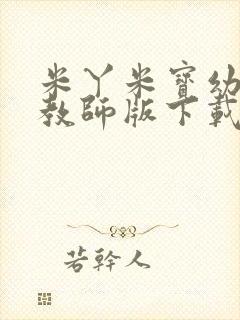 米丫米寶幼
教師版下載
若幹人